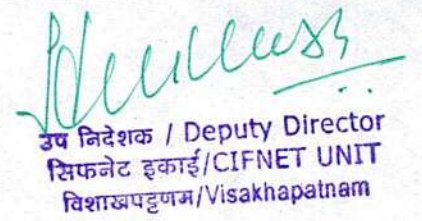 उप निदेशक / Deputy Director
सिफनेट इकाई/CIFNET UNIT
विशाखपट्टणम/Visakhapatnam